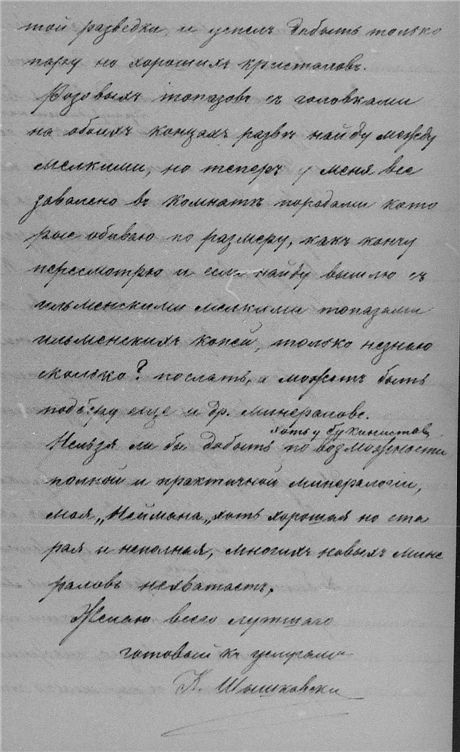 той разведки и успелъ добыть только
пару но хорошихъ кристаловъ.
Розовыхъ топазовъ съ головками
на обоихъ концахъ развѣ найду между
мелкими, но теперь у меня все
завалено въ комнатѣ породами кото
рые обиваю по размеру, какъ кончу
пересмотрю и если найду вышлю съ
ильменскими мелкими топазами
ильменскихъ копей, только незнаю
сколько? послать, а можетъ быть
подберу еще и др. минераловъ.
хоть у букинистов
Нельзя ли бы добыть по возможности
полной и практичной минералогии,
моя „Неймана„ хоть хорошая но ста
рая и неполная, многихъ новыхъ мине
раловъ нехватаетъ.
Желаю всего лутшаго
готовый къ услугамъ
К. Шишковски